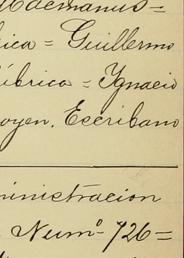 Macmanus =
rica = Guillermo
úbrica = Ignacio
oyen. Escribano
ministracion
Numº 726 =